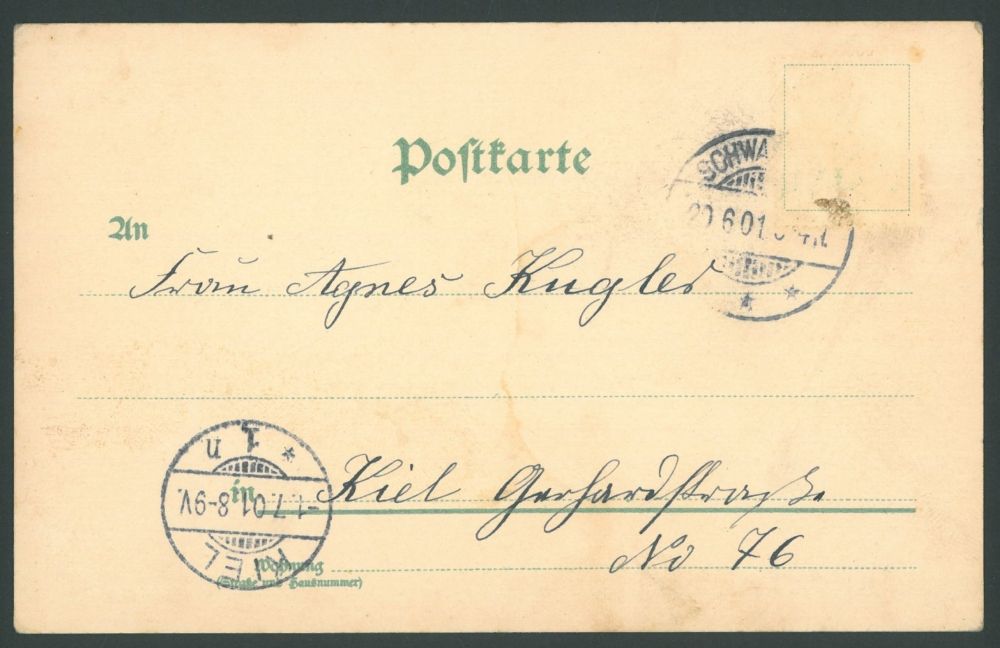 Postkarte
SCHWA
6.01.
An
Frau Agnes Kugler
1 n
-1.7.01.8-9V.
KIEL
in Kiel Gerhardstraße
No 76
Wohnung
(Straße und Hausnummer)